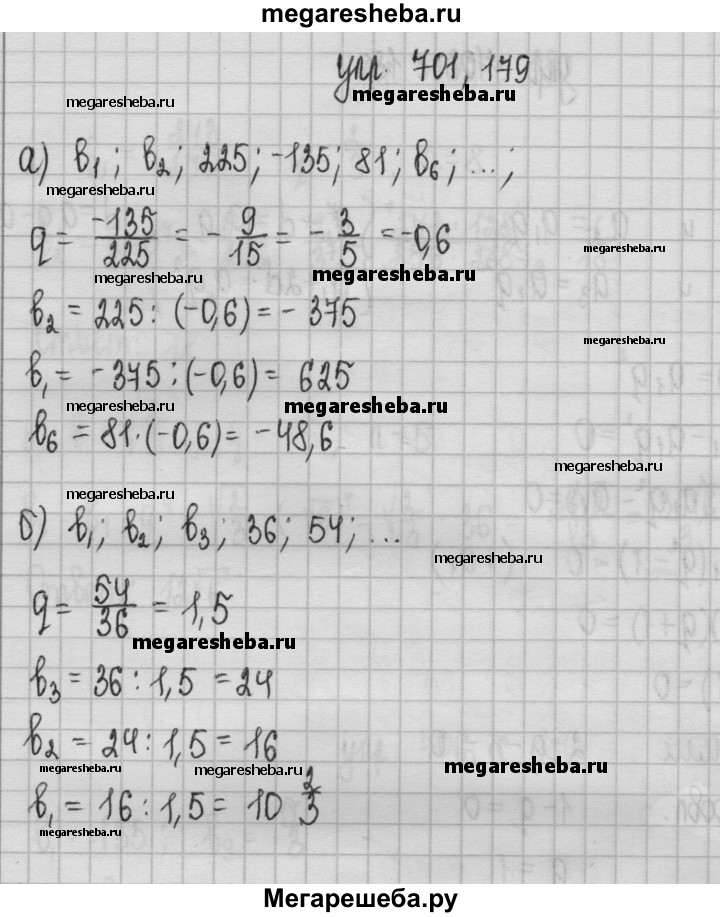 megaresheba.ru
упр. 701, 179
megaresheba.ru
megaresheba.ru
а) b₁; b₂; 225; -135; 81; b₆; ...;
megaresheba.ru
q = -135/225 = - 9/15 = - 3/5 = -0,6
megaresheba.ru
megaresheba.ru
b₂ = 225 : (-0,6) = - 375
megaresheba.ru
b₁ = - 375 : (-0,6) = 625
megaresheba.ru
megaresheba.ru
b₆ = 81 · (-0,6) = -48,6
megaresheba.ru
megaresheba.ru
б) b₁; b₂; b₃; 36; 54; ...
megaresheba.ru
q = 54/36 = 1,5
megaresheba.ru
b₃ = 36 : 1,5 = 24
b₂ = 24 : 1,5 = 16
megaresheba.ru
megaresheba.ru
megaresheba.ru
b₁ = 16 : 1,5 = 10 2/3
megaresheba.ru
Мегарешеба.ру